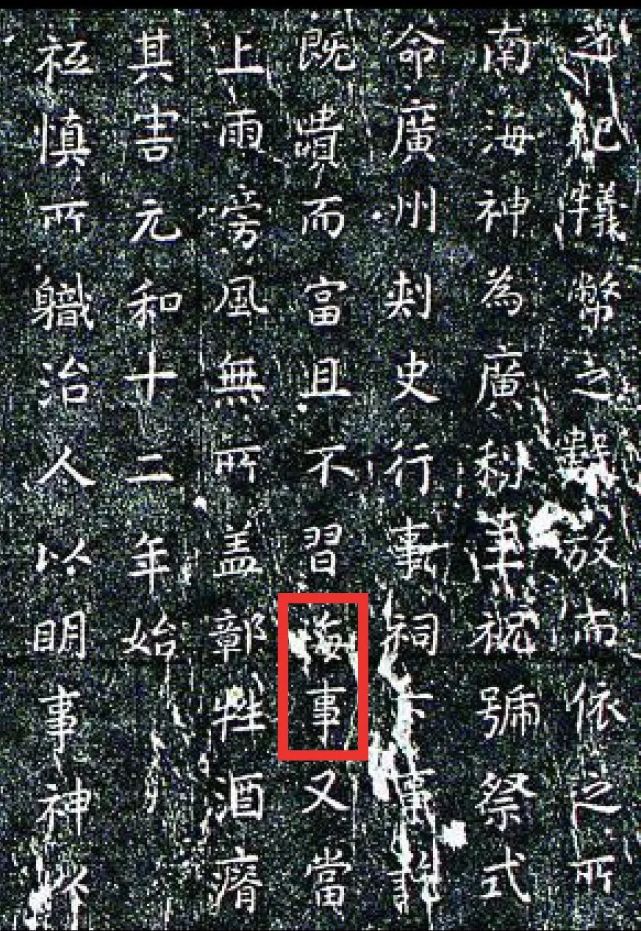 祀犧幣之數放而依之所
南海神為廣利王祝號祭式
命廣州刺史行事祠下事訖
既貴而富且不習海事又當
上雨旁風無所盖鄣牲酒瘠
其害元和十二年始
祗慎所職治人以明事神以